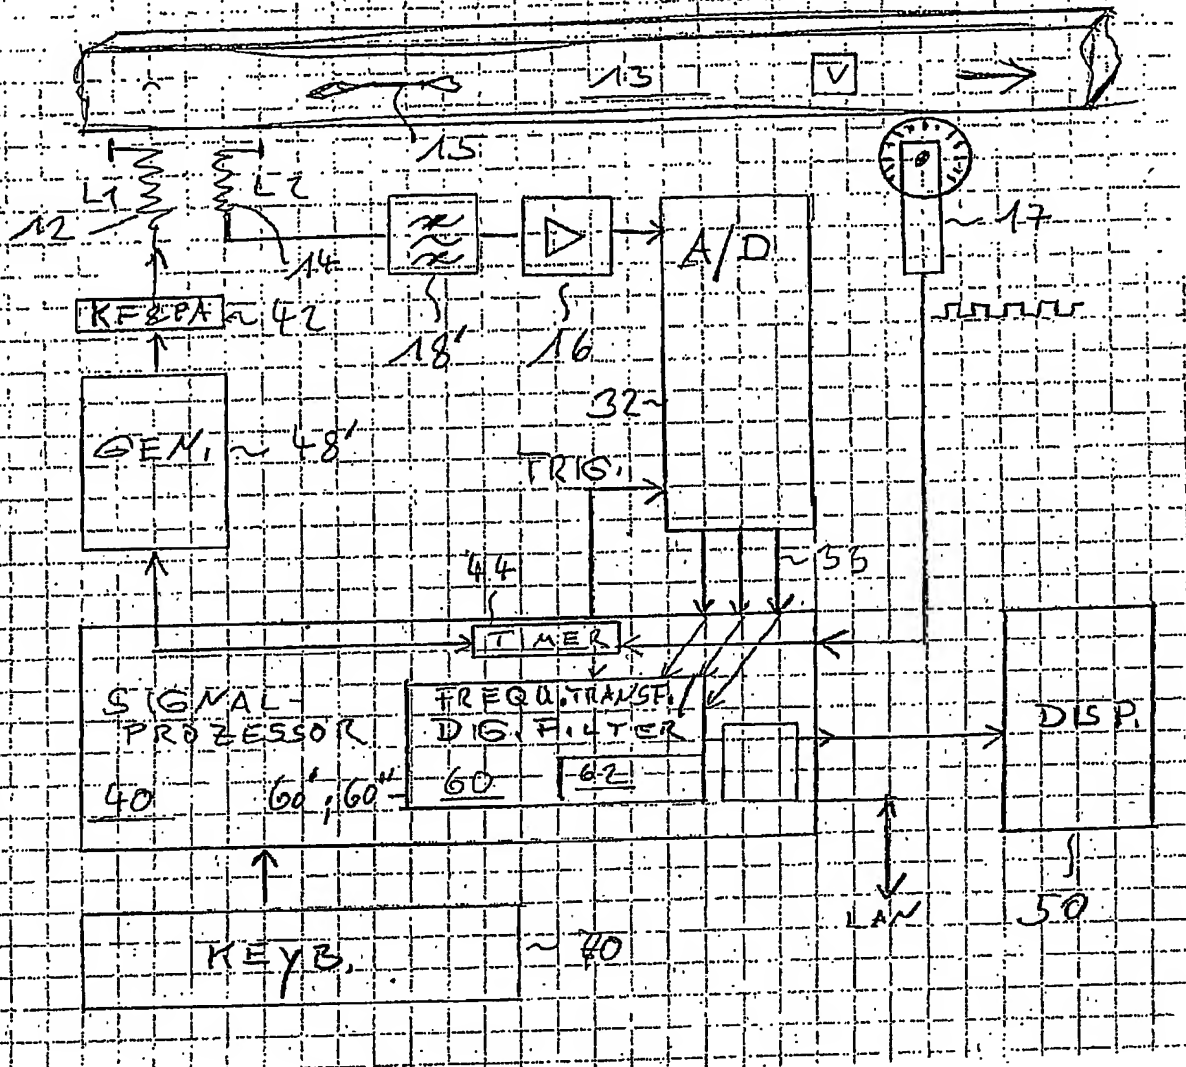 13
V
15
L1
L2
12
14
A/D
17
42
18'
16
32
GEN.
48'
TRIG.
44
33
TIMER
SIGNAL-
PROZESSOR
FREQU.TRANSF./
DIG.FILTER
DISP.
40
60', 60"
60
62
LAN
50
KEYB.
70